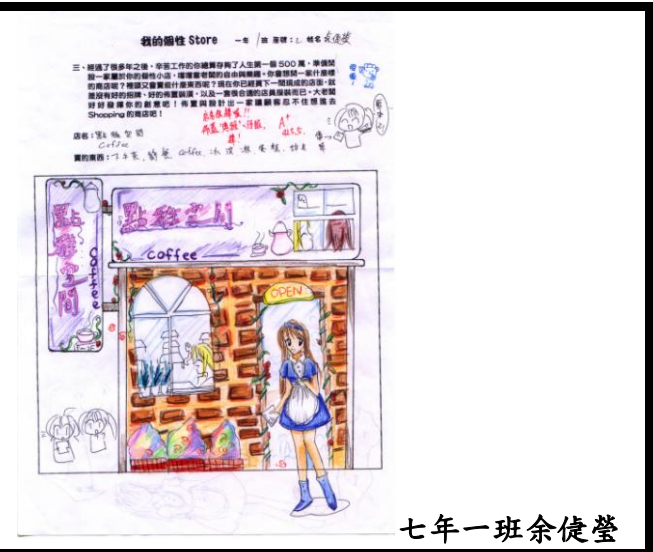 我的個性 Store 一年 1 班 座號：2 姓名 余倢瑩
三、經過了很多年之後，辛苦工作的你總算存夠了人生第一個 500 萬，準備開
設一家屬於你的個性小店，嚐嚐當老闆的自由與樂趣。你會想開一家什麼樣
的商店呢？裡頭又會賣些什麼東西呢？現在你已經買下一間現成的店面，就
差沒有好的招牌、好的佈置裝潢，以及一套很合適的店員服裝而已。大老闆
好好發揮你的創意吧！佈置與設計出一家讓顧客忍不住想進去
Shopping 的商店吧！
A+
店名：點雅空間
Coffee
賣的東西：下午茶、簡餐、coffee、冰淇淋、蛋糕
點雅空間
Coffee
點雅空間
coffee
OPEN
七年一班余倢瑩